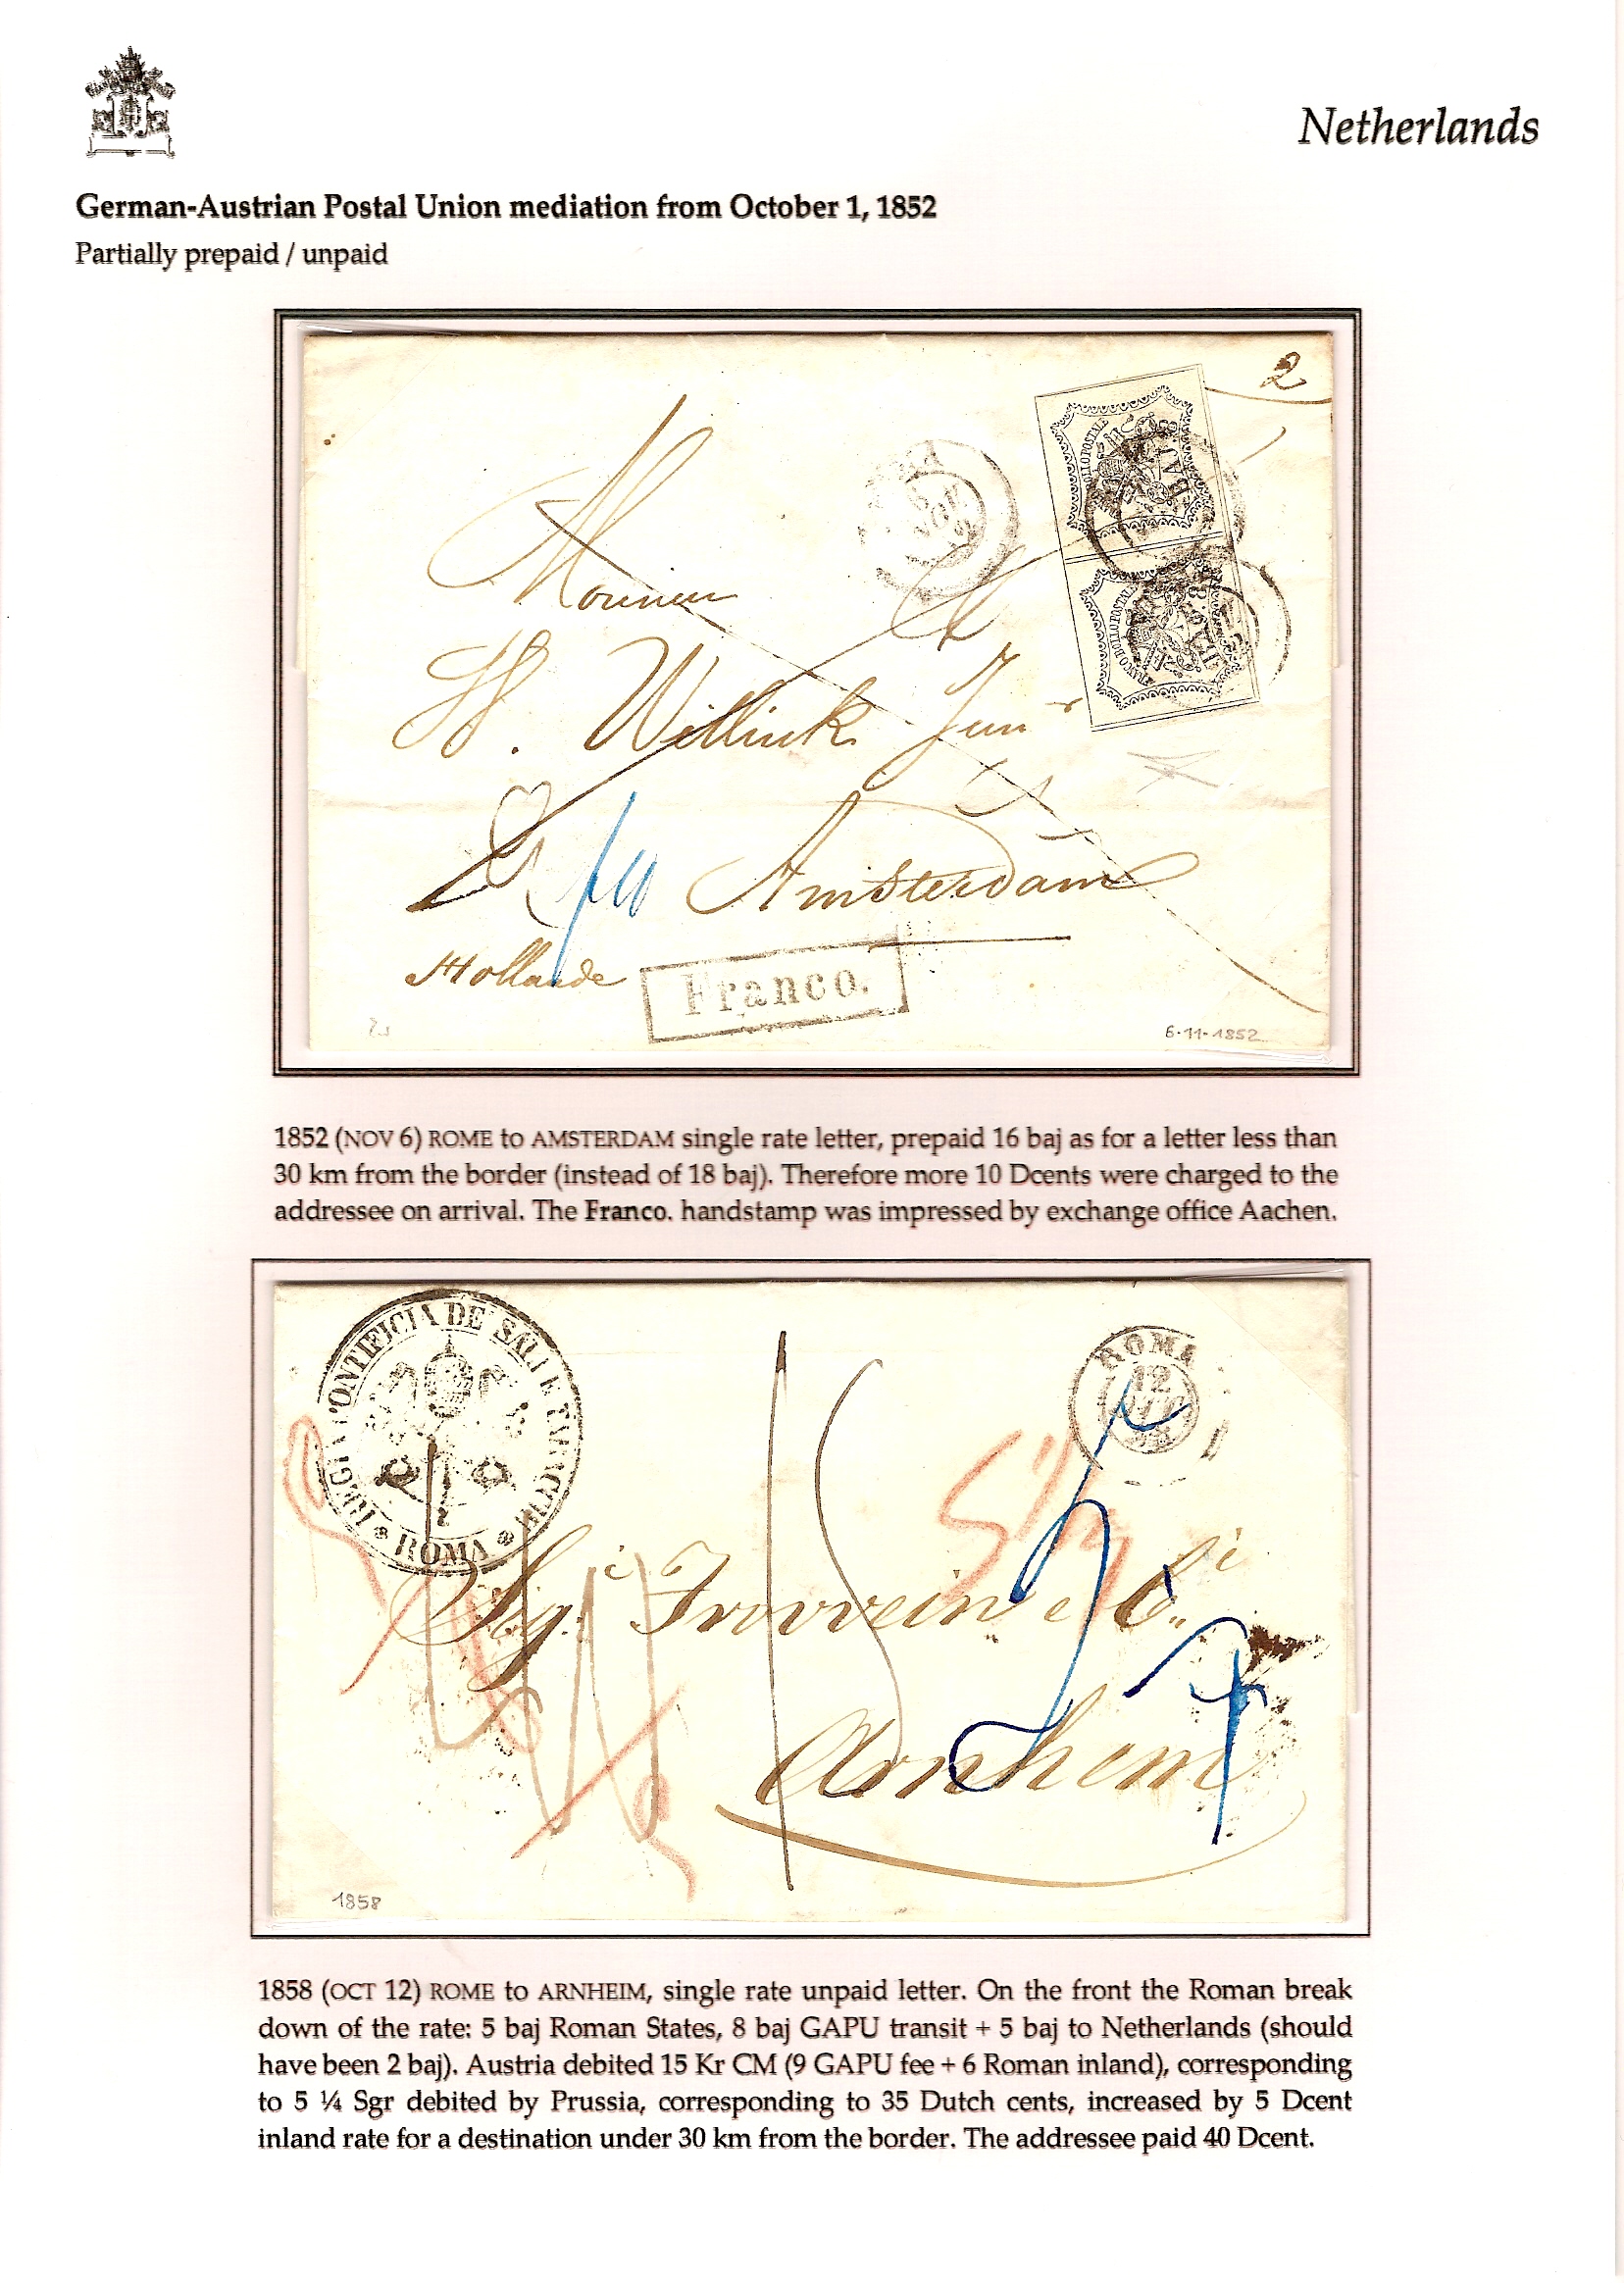 Netherlands
German-Austrian Postal Union mediation from October 1, 1852
Partially prepaid / unpaid
2
FRANCO BOLLO POSTALE
BAJ 8
FRANCO BOLLO POSTALE
BAJ 8
NOV
Monsieur
W. Willink Junr
Amsterdam
Hollande
Franco.
6-11-1852
1852 (NOV 6) ROME to AMSTERDAM single rate letter, prepaid 16 baj as for a letter less than
30 km from the border (instead of 18 baj). Therefore more 10 Dcents were charged to the
addressee on arrival. The Franco. handstamp was impressed by exchange office Aachen.
REGIA PONTIFICIA DE SALI E TABACCHI
ROMA
ROMA
12
58
15
5 1/4
Sigi
e Ci
Arnhem
1858
1858 (OCT 12) ROME to ARNHEIM, single rate unpaid letter. On the front the Roman break
down of the rate: 5 baj Roman States, 8 baj GAPU transit + 5 baj to Netherlands (should
have been 2 baj). Austria debited 15 Kr CM (9 GAPU fee + 6 Roman inland), corresponding
to 5 ¼ Sgr debited by Prussia, corresponding to 35 Dutch cents, increased by 5 Dcent
inland rate for a destination under 30 km from the border. The addressee paid 40 Dcent.